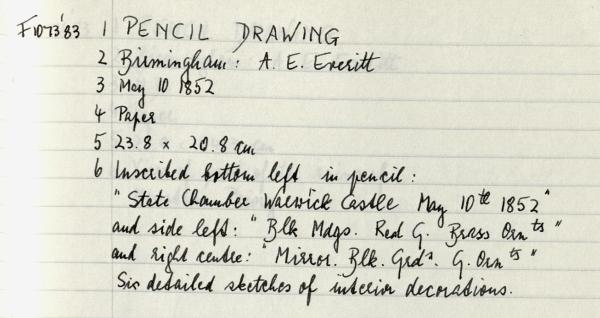 F1073'83 1 PENCIL DRAWING
2 Birmingham: A. E. Everitt
3 May 10 1852
4 Paper
5 23.8 x 20.8 cm
6 Inscribed bottom left in pencil:
"State Chamber Warwick Castle May 10th 1852"
and side left: "Blk Mdgs. Real G. Brass Ornts"
and right centre: "Mirror. Blk. Grds. G. Ornts"
Six detailed sketches of interior decorations.